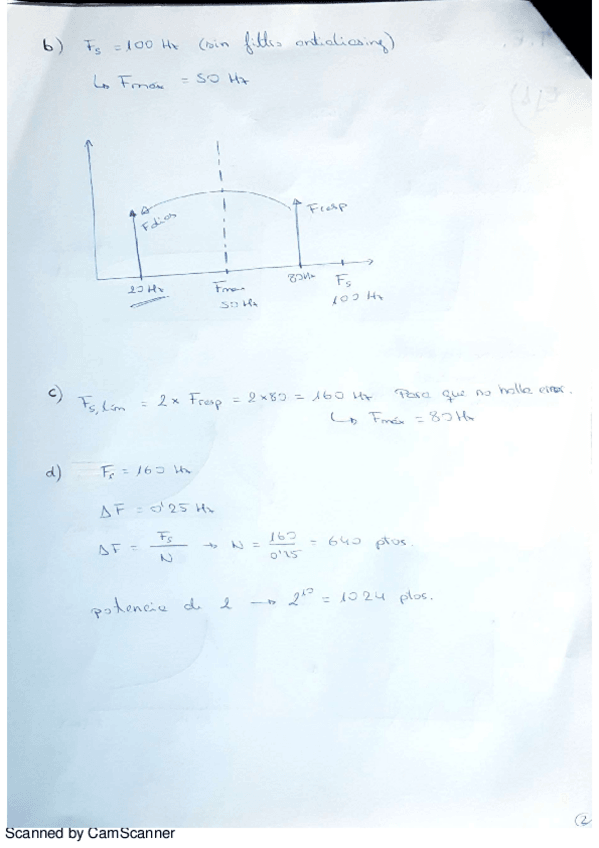 b) Fs = 100 Hz (sin filtro antialiasing)
↳ Fmáx = 50 Hz
Falias
Fresp
20 Hz
Fmax
50 Hz
80Hz
Fs
100 Hz
c) Fs,lím = 2 x Fresp = 2x80 = 160 Hz Para que no halla error.
↳ Fmáx = 80Hz
d) Fs = 160 Hz
ΔF = 0'25 Hz
ΔF = Fs/N → N = 160/0'25 = 640 ptos.
potencia de 2 → 2^10 = 1024 ptos.
2
Scanned by CamScanner